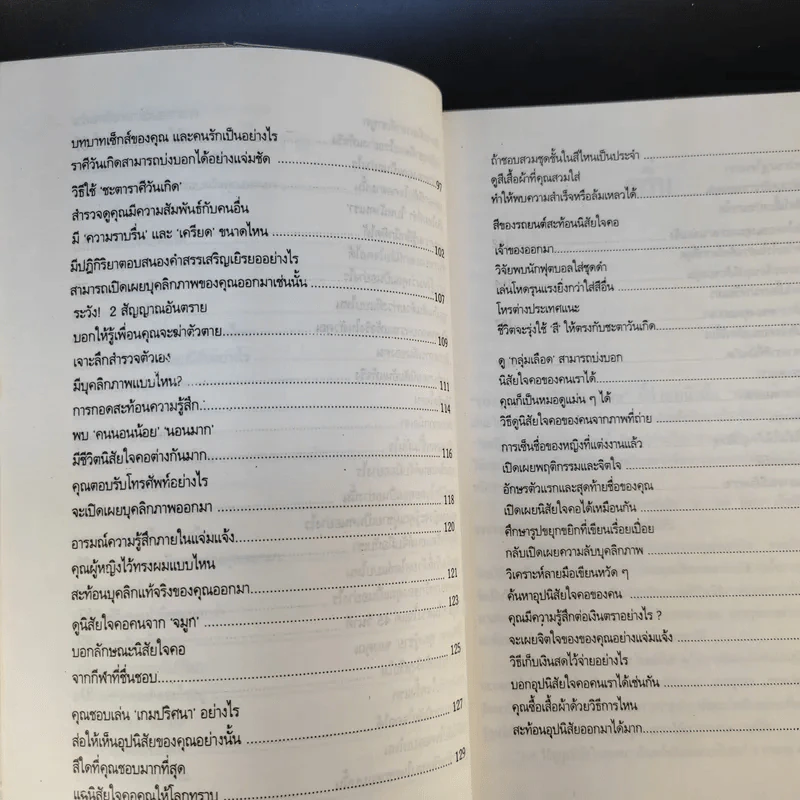 บทบาทเซ็กส์ของคุณ และคนรักเป็นอย่างไร
ราศีวันเกิดสามารถบ่งบอกได้อย่างแจ่มชัด ........ 97
วิธีใช้ 'ชะตาราศีวันเกิด'
สำรวจดูคุณมีความสัมพันธ์กับคนอื่น
มี 'ความราบรื่น' และ 'เครียด' ขนาดไหน ........ 102
มีปฏิกิริยาตอบสนองคำสรรเสริญเยิรยออย่างไร
สามารถเปิดเผยบุคลิกภาพของคุณออกมาเช่นนั้น ........ 107
ระวัง! 2 สัญญาณอันตราย
บอกให้รู้เพื่อนคุณจะฆ่าตัวตาย ........ 109
เจาะลึกสำรวจตัวเอง
มีบุคลิกภาพแบบไหน? ........ 111
การกอดสะท้อนความรู้สึก ........ 114
พบ 'คนนอนน้อย' 'นอนมาก'
มีชีวิตนิสัยใจคอต่างกันมาก ........ 116
คุณตอบรับโทรศัพท์อย่างไร
จะเปิดเผยบุคลิกภาพออกมา ........ 118
อารมณ์ความรู้สึกภายในแจ่มแจ้ง ........ 120
คุณผู้หญิงไว้ทรงผมแบบไหน
สะท้อนบุคลิกแท้จริงของคุณออกมา ........ 121
ดูนิสัยใจคอคนจาก 'จมูก' ........ 123
บอกลักษณะนิสัยใจคอ
จากกีฬาที่ชื่นชอบ ........ 125
คุณชอบเล่น 'เกมปริศนา' อย่างไร
ส่อให้เห็นอุปนิสัยของคุณอย่างนั้น ........ 127
สีใดที่คุณชอบมากที่สุด
แฉนิสัยใจคอคุณให้โลกทราบ ........ 129
ถ้าชอบสวมชุดชั้นในสีไหนเป็นประจำ ........
ดูสีเสื้อผ้าที่คุณสวมใส่
ทำให้พบความสำเร็จหรือล้มเหลวได้ ........
สีของรถยนต์สะท้อนนิสัยใจคอ
เจ้าของออกมา ........
วิจัยพบนักฟุตบอลใส่ชุดดำ
เล่นโหดรุนแรงยิ่งกว่าใส่สีอื่น ........
โหรต่างประเทศแนะ
ชีวิตจะรุ่งใช้ 'สี' ให้ตรงกับชะตาวันเกิด ........
ดู 'กลุ่มเลือด' สามารถบ่งบอก
นิสัยใจคอของคนเราได้ ........
คุณก็เป็นหมอดูแม่น ๆ ได้
วิธีดูนิสัยใจคอของคนจากภาพที่ถ่าย ........
การเซ็นชื่อของหญิงที่แต่งงานแล้ว
เปิดเผยพฤติกรรมและจิตใจ ........
อักษรตัวแรกและสุดท้ายชื่อของคุณ
เปิดเผยนิสัยใจคอได้เหมือนกัน ........
ศึกษารูปขยุกขยิกที่เขียนเรื่อยเปื่อย
กลับเปิดเผยความลับบุคลิกภาพ ........
วิเคราะห์ลายมือเขียนหวัด ๆ
ค้นหาอุปนิสัยใจคอของคน ........
คุณมีความรู้สึกต่อเงินตราอย่างไร ?
จะเผยจิตใจของของคุณอย่างแจ่มแจ้ง ........
วิธีเก็บเงินสดไว้จ่ายอย่างไร
บอกอุปนิสัยใจคอคนเราได้เช่นกัน ........
คุณซื้อเสื้อผ้าด้วยวิธีการไหน
สะท้อนอุปนิสัยออกมาได้มาก ........